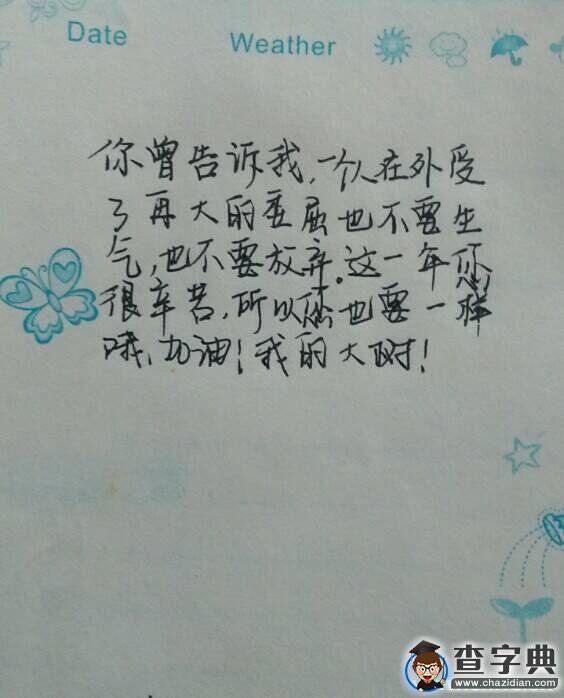 Date Weather
你曾告诉我,一个人在外受
了再大的委屈也不要生
气,也不要放弃.这一年您
很辛苦,所以您也要一样
哦,加油!我的大树!
查字典
www.chazidian.com